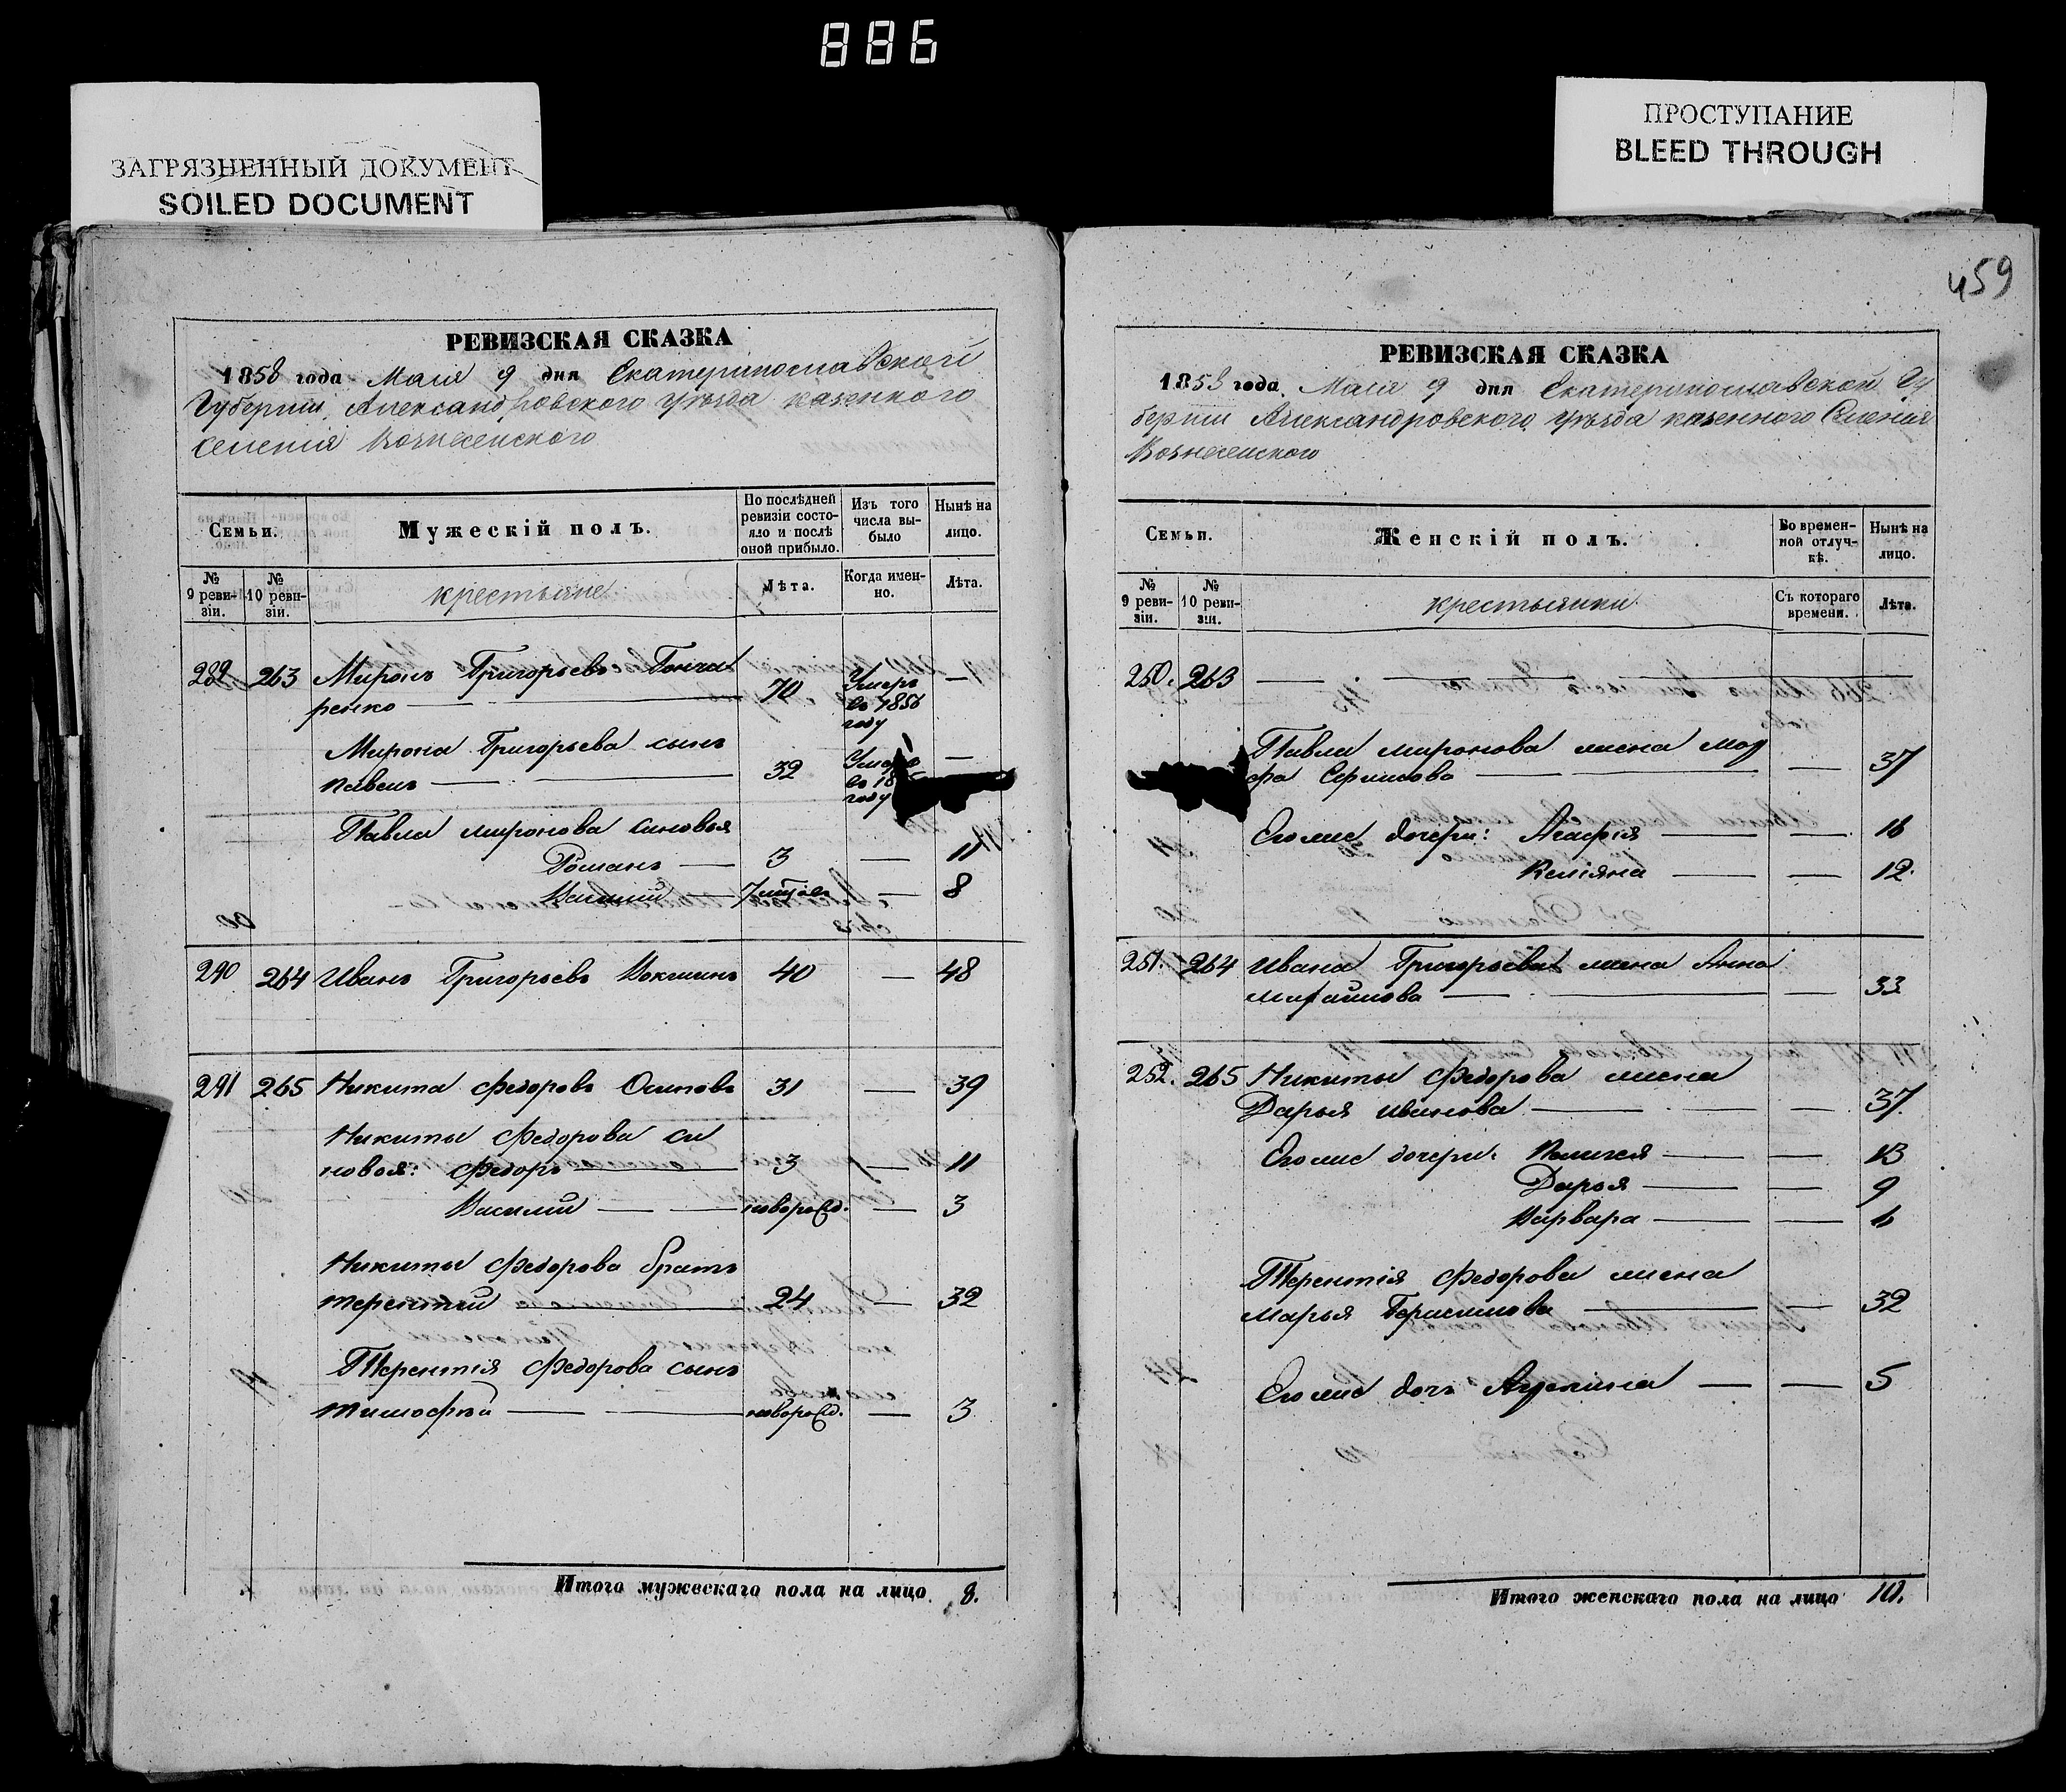 886
ЗАГРЯЗНЕННЫЙ ДОКУМЕНТ
SOILED DOCUMENT
ПРОСТУПАНИЕ
BLEED THROUGH
РЕВИЗСКАЯ СКАЗКА
1858 года Мая 9 дня Екатеринославской
Губернии Александровского уѣзда казенного
селенія Вознесенского
Семьи.
Мужескій полъ.
По послѣдней ревизіи состояло и послѣ оной прибыло.
Изъ того числа выбыло
Нынѣ на лицо.
№ 9 ревизіи.
№ 10 ревизіи.
крестьяне
Лѣта.
Когда именно.
Лѣта.
289 263 Миронъ Григорьевъ Гонча
ренко 70 Умеръ во 1856 году —
Мирона Григорьева сынъ
Павелъ 32 —
Павла Миронова синовья
Романъ — 3 — 11
— 8
290 264 Иванъ Григорьевъ 40 — 48
291 265 Никита Федоровъ Осиповъ 31 — 39
Никиты Федорова си
новья: Федоръ 3 — 11
Василий — новорожд. — 3
Никиты Федорова братъ
Терентий 24 — 32
Терентія Федорова сынъ
Тимофѣй — новорожд. — 3
Итого мужескаго пола на лицо 8.
459
РЕВИЗСКАЯ СКАЗКА
1858 года Мая 9 дня Екатеринославской Гу
берніи Александровского уѣзда казенного Селенія
Вознесенского
Семьи.
Женскій полъ.
Во временной отлучкѣ.
Нынѣ на лицо.
№ 9 ревизіи.
№ 10 ревизіи.
крестьянки
Съ котораго времени.
Лѣта.
250. 263 —
Павла Миронова жена
— 37
Егоже дочери: Агафія — —
— 12.
251. 264 Ивана Григорьева жена Анна
Михайлова — 33
252. 265 Никиты Федорова жена
Дарья Иванова — 37
Егоже дочери: Пелагея — — 13
Дарья — — 9
Варвара — —
Терентія Федорова жена
Марья Герасимова — 32
Егоже дочь — — 5
Итого женскаго пола на лицо 10.